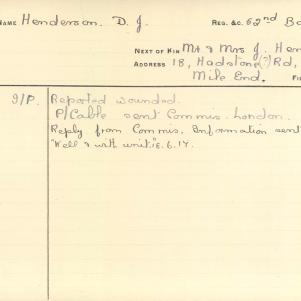 NAME Henderson. D. J. REG. &C. 62nd Ba
NEXT OF KIN Mr & Mrs J. Hen
ADDRESS 18, Hadstone(?) Rd,
Mile End. Fi
I/P. Reported wounded.
P/Cable sent Commis. London.
Reply from Commis. Information sent
"Well & with unit" 18.6.17.